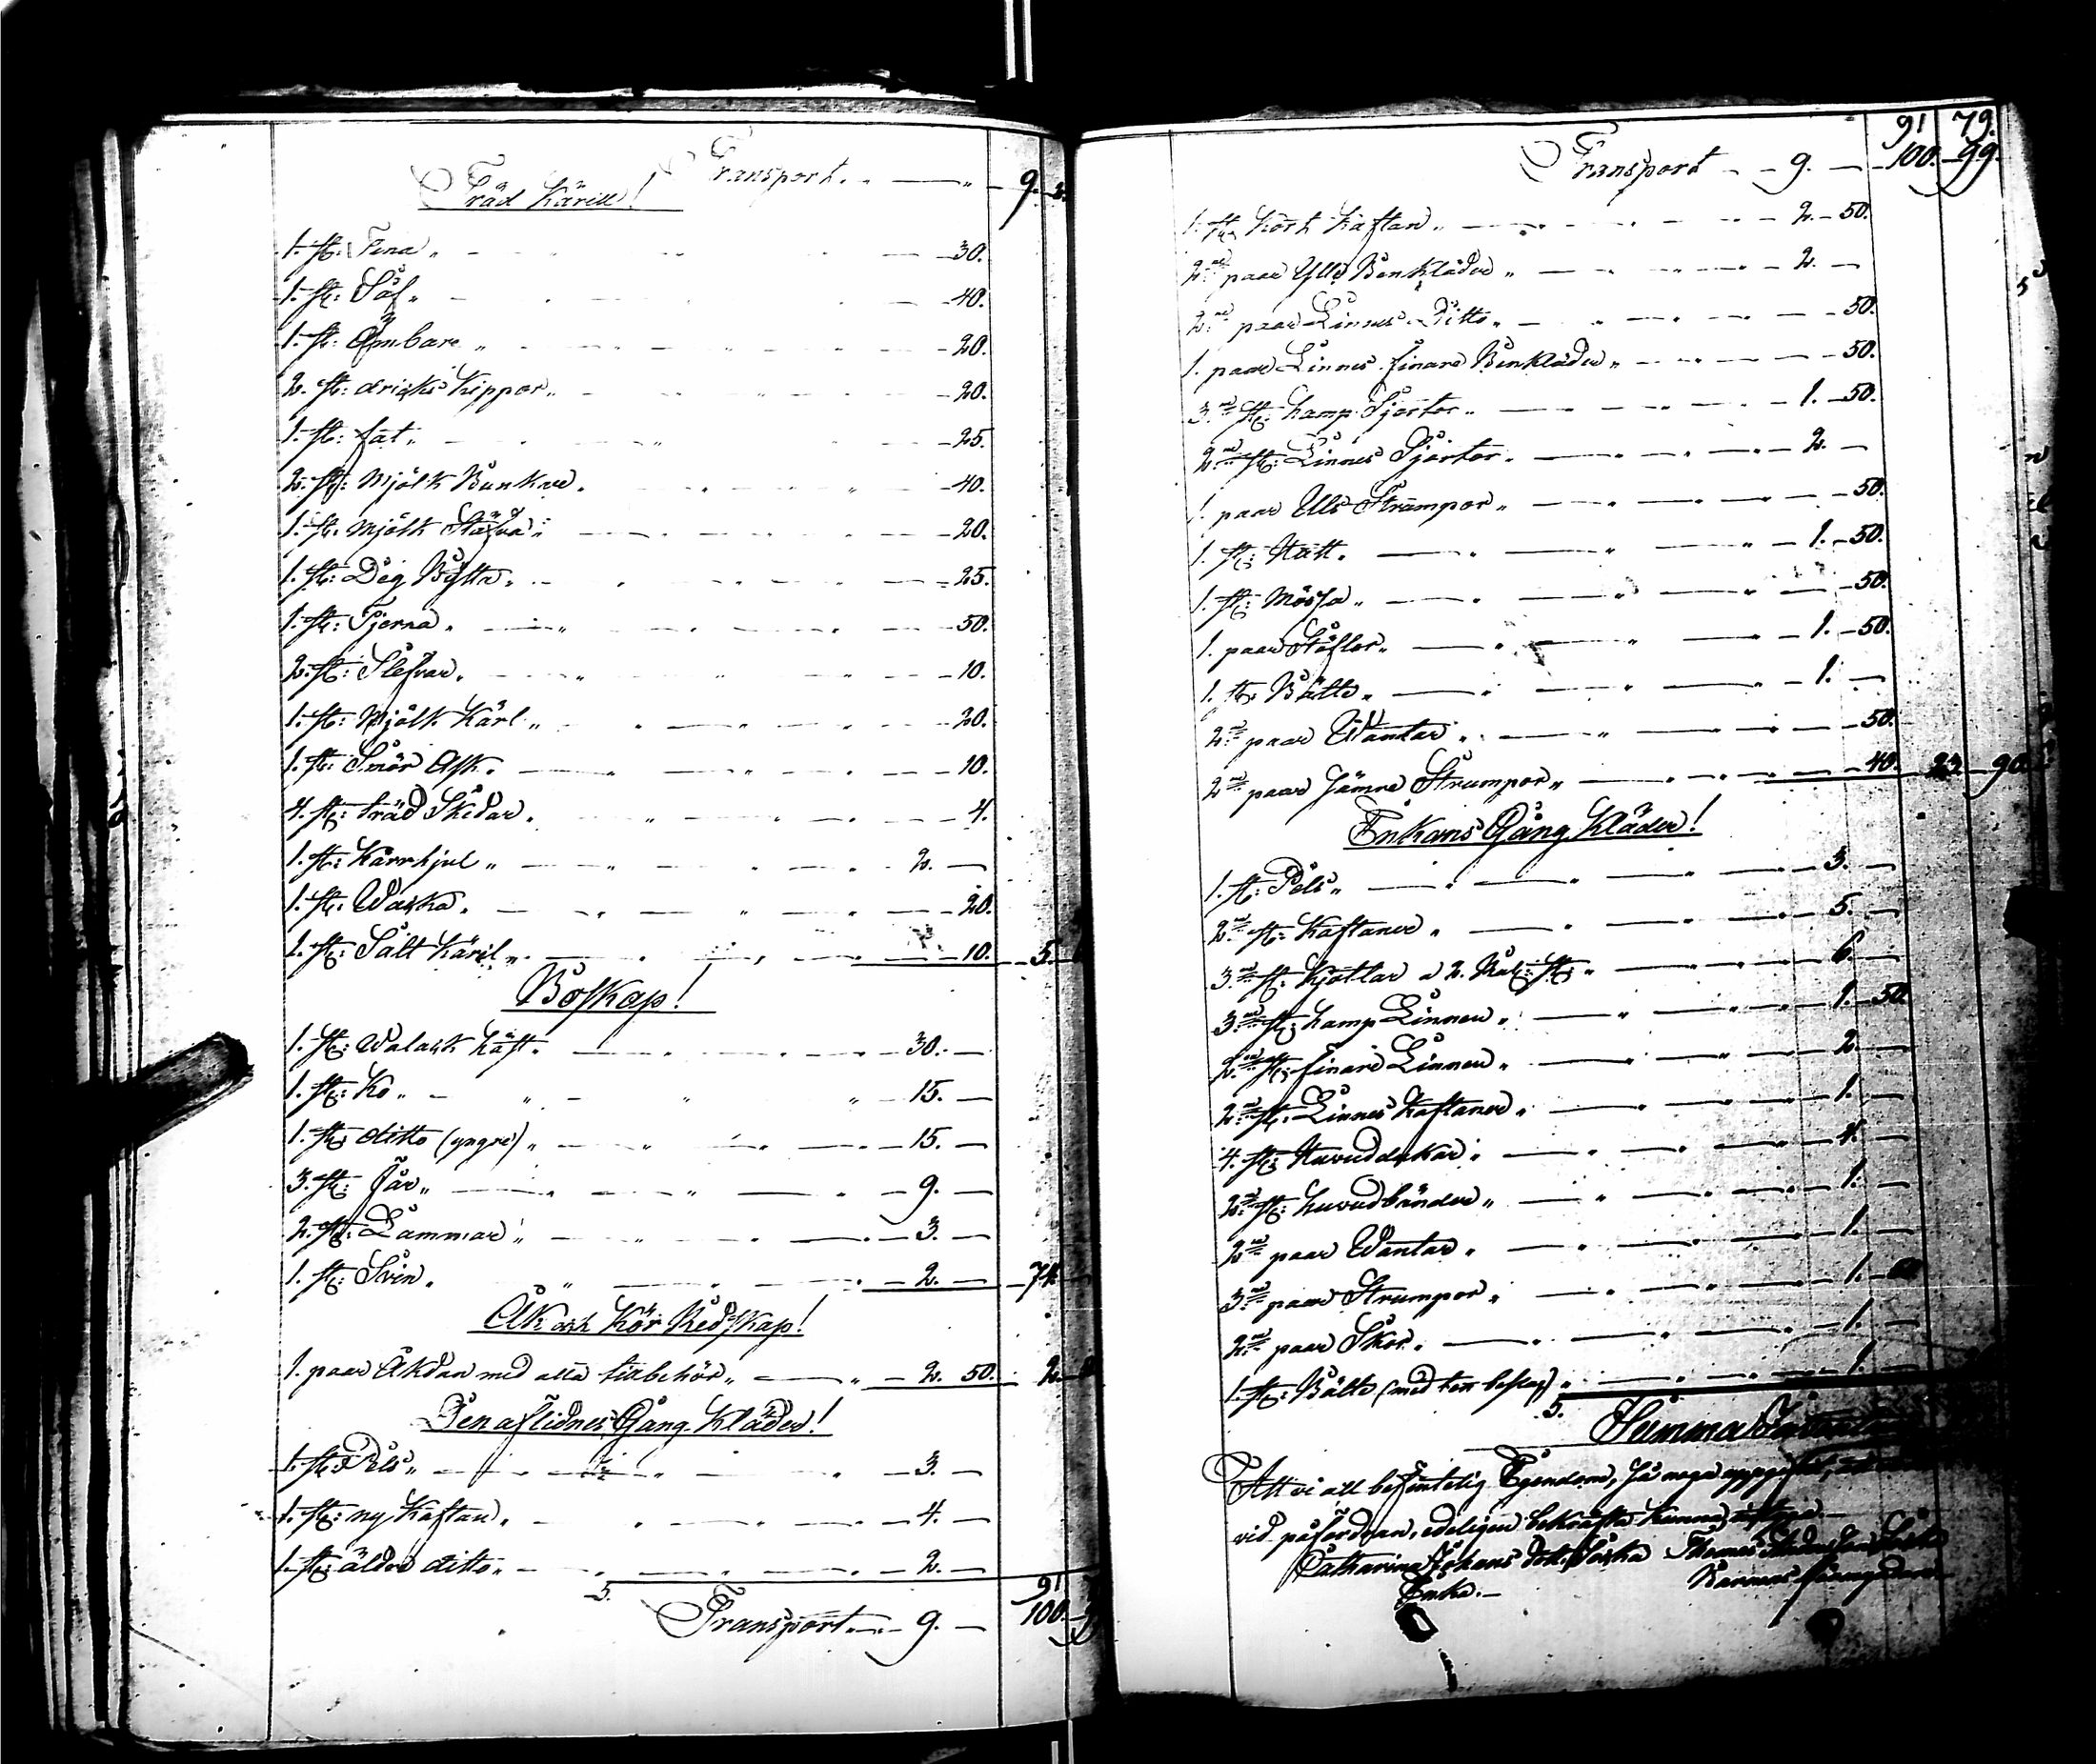 Transport 9.
Träd Käril!
1. st: Tina 30.
1. st: Så 40.
1. st: Ämbare 20.
2. st: dricks Kippor 20.
1. st: fat 25.
2. st: Mjölk Bunkar 40.
1. st: Mjölk Stäfva 20.
1. st: Deg Bytta 25.
1. st: Tjerna 50.
2. st: Slefvar 10.
1. st: Mjölk Kärl 20.
1. st: Smör Ask 10.
4. st: träd Skedar 4.
1. st: Kärrhjul 2. —
1. st: Waska 20.
1. st: Salt Käril 10. 5.
Boskap!
1. st: Walack häst 30. —
1. st: Ko 15. —
1. st: ditto (yngre) 15. —
3. st: Får 9. —
2. st: Lammar 3. —
1. st: Svin 2. — 74.
Åk och Kör Redskap!
1. paar Åkdon med alla tillbehör 2. 50. 2.
Den aflidnes Gång Kläder!
1. st: Pels 3. —
1. st: ny Kaftan 4. —
1. st: äldre ditto 2. —
5. 91
Transport 9. — 100.
91 79.
Transport 9. — 100. 99.
1. st: Kort Kaftan 2. 50.
2. paar Ylle Benkläder 2. —
2. paar Linnes Ditto 50.
1. paar Linnes finare Benkläder 50.
3. st: hamp Sjortor 1. 50.
2. st: Linnes Sjortor 2. —
1. paar Ulls Strumpor 50.
1. st: Hatt 1. 50.
1. st: Mössa 50.
1. paar Stöflor 1. 50.
1. st: Bälte 1. —
2. paar Wantar 50.
2. paar Sämre Strumpor 40. 23. 90.
Enkans Gång Kläder!
1. st: Pels 3. —
2. st: Kaftaner 5. —
3. st: Kjortlar a 2. Rub: st: 6. —
3. st: hamp Linnen 1. 50.
2. st: finare Linnen 2. —
2. st: Linnes Kaftaner 1. —
4. st: Huvuddukar 4. —
2. st: huvudbänder 1. —
2. paar Wantar 1. —
3. paar Strumpor 1.
2. paar Skor 1. —
1. st: Bälte (med ten beslag) 1. —
5.
Summa
Att vi all befintelig Egendom, så noga uppgifvit,
vid påfordran, edeligen bekräfta kunna,
Catharina Johans dot. Thomas
Enka. — Barnens